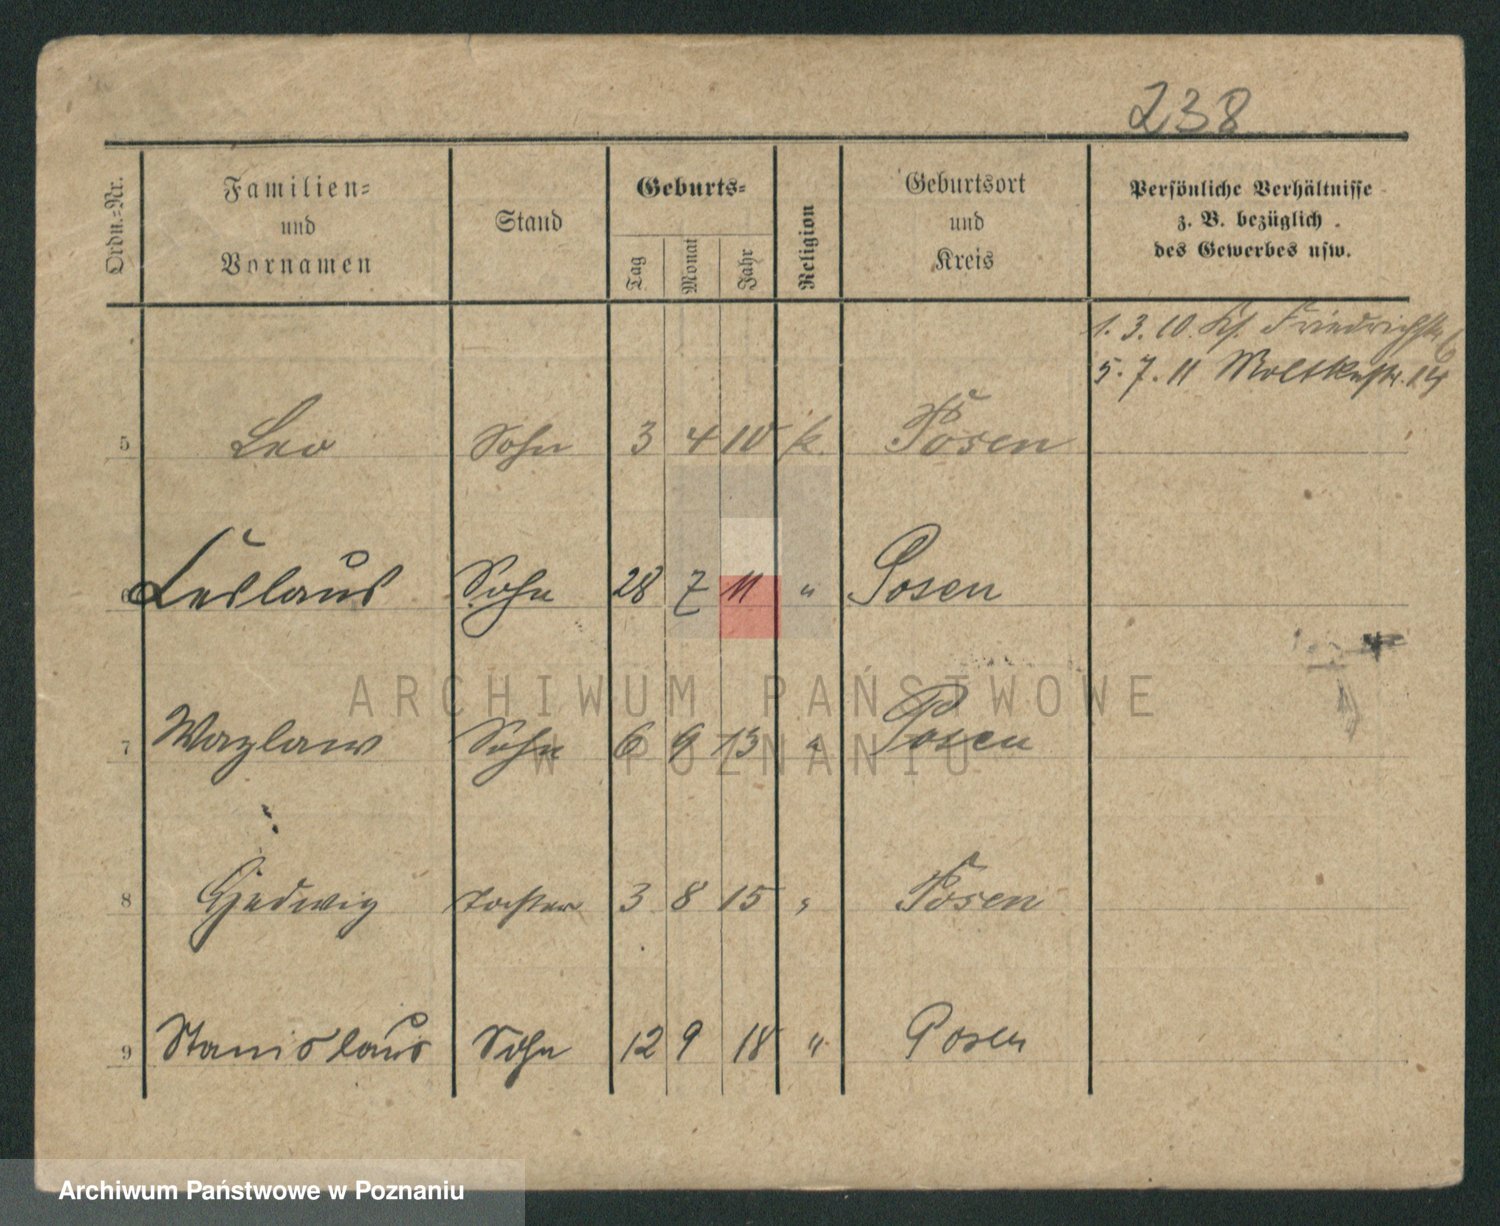 238
Ordn.-Nr.
Familien-
und
Vornamen
Stand
Geburts-
Tag
Monat
Jahr
Religion
Geburtsort
und
Kreis
Persönliche Verhältnisse
z. B. bezüglich
des Gewerbes usw.
1. 3. 10. Friedrichstr.
5. 7. 11 Moltkestr. 14
5 Leo Sohn 3 4 10 k. Posen
6 Leslaus Sohn 28 7 11 " Posen
ARCHIWUM PAŃSTWOWE
7 Wazlaw Sohn 6 9 13 " Posen
W POZNANIU
8 Hedwig Tochter 3 8 15 " Posen
9 Stanislaus Sohn 12 9 18 " Posen
Archiwum Państwowe w Poznaniu